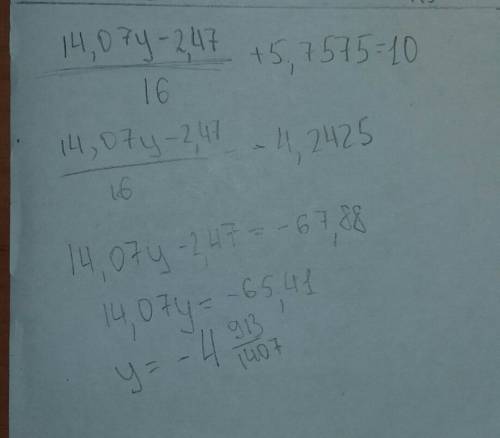 (14,07y-2,47)/16 +5,7575=10
(14,07y-2,47)/16 - 4,2425
14,07y-2,47=-67,88
14,07y=-65,41
y=-4 913/1407